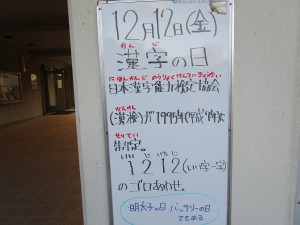 12月12日(金)
かん じ
漢字の日
に ほん かん じ のう りょく けん てい きょう かい
日本漢字能力検定協会
かんけん
(漢検)が1995年(平成7年)に
せいてい
制定。
いい じ いち じ
12 12(いい字一字)
のゴロあわせ。
明太子の日 バッテリーの日
でもある